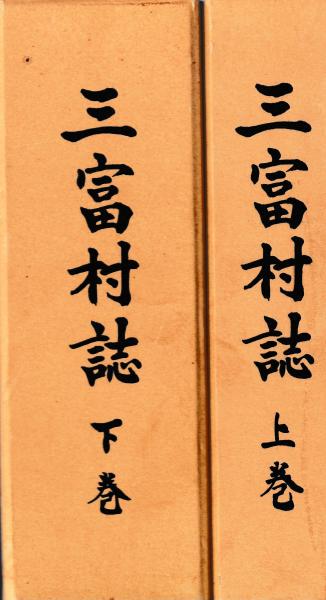 三富村誌 上巻
三富村誌 下巻